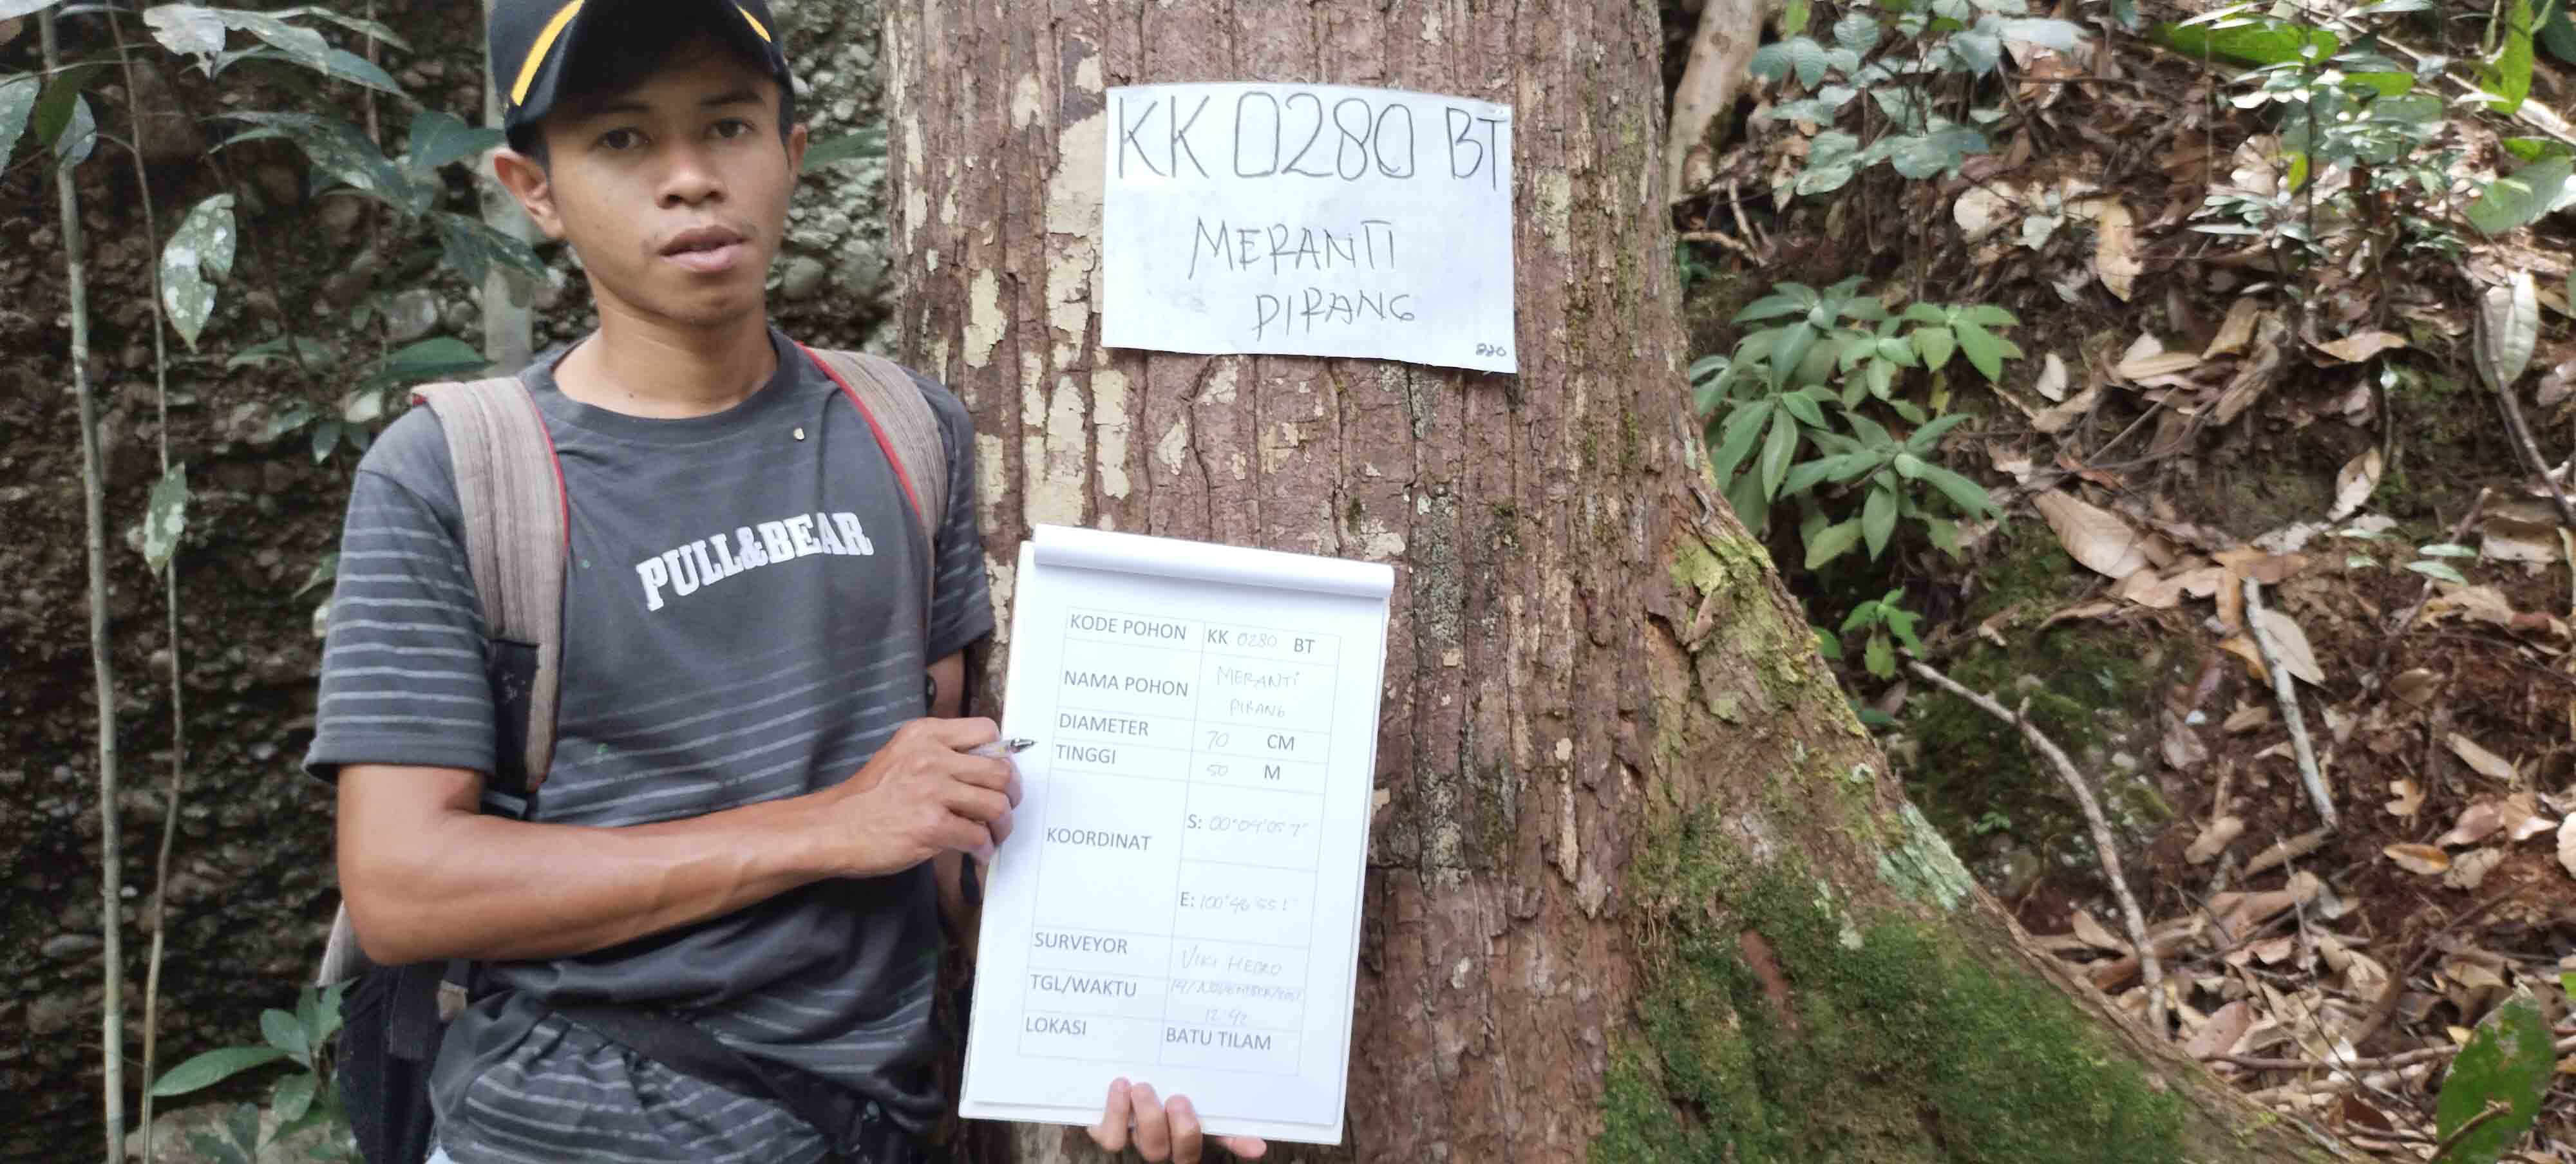 KK 0280 BT
MERANTI
PIRANG
220
PULL&BEAR
KODE POHON KK 0280 BT
NAMA POHON MERANTI
PIRANG
DIAMETER 70 CM
TINGGI 50 M
KOORDINAT
S: 00°04'05.7"
E: 100°46'55.1"
SURVEYOR VIKI HEDRO
TGL/WAKTU 19/NOVEMBER/2021
12:42
LOKASI BATU TILAM